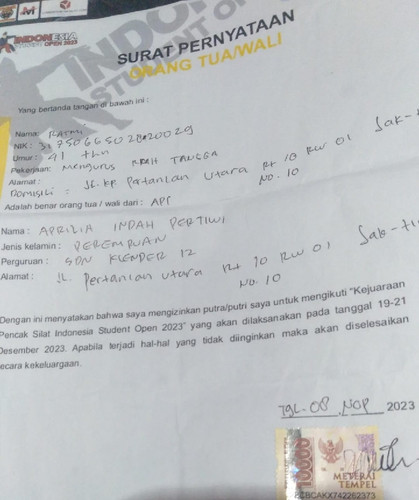 INDONESIA
STUDENT OPEN 2023
SURAT PERNYATAAN
ORANG TUA/WALI
Yang bertanda tangan di bawah ini :
Nama: RATMI
NIK :
Umur : 41 thn
Pekerjaan: Mengurus RUMAH TANGGA
Alamat :
Domisili : JL. KP Pertanian Utara Rt 10 RW 01 Jak-
NO. 10
Adalah benar orang tua / wali dari : API
Nama : APRILIA INDAH PERTIWI
Jenis kelamin : PEREMPUAN
Perguruan : SDN KLENDER 12
Alamat : JL. Pertanian Utara Rt 10 RW 01 Jak-ti
NO. 10
Dengan ini menyatakan bahwa saya mengizinkan putra/putri saya untuk mengikuti "Kejuaraan
Pencak Silat Indonesia Student Open 2023" yang akan dilaksanakan pada tanggal 19-21
Desember 2023. Apabila terjadi hal-hal yang tidak diinginkan maka akan diselesaikan
secara kekeluargaan.
Tgl-08, NOP 2023
10000
METERAI
TEMPEL